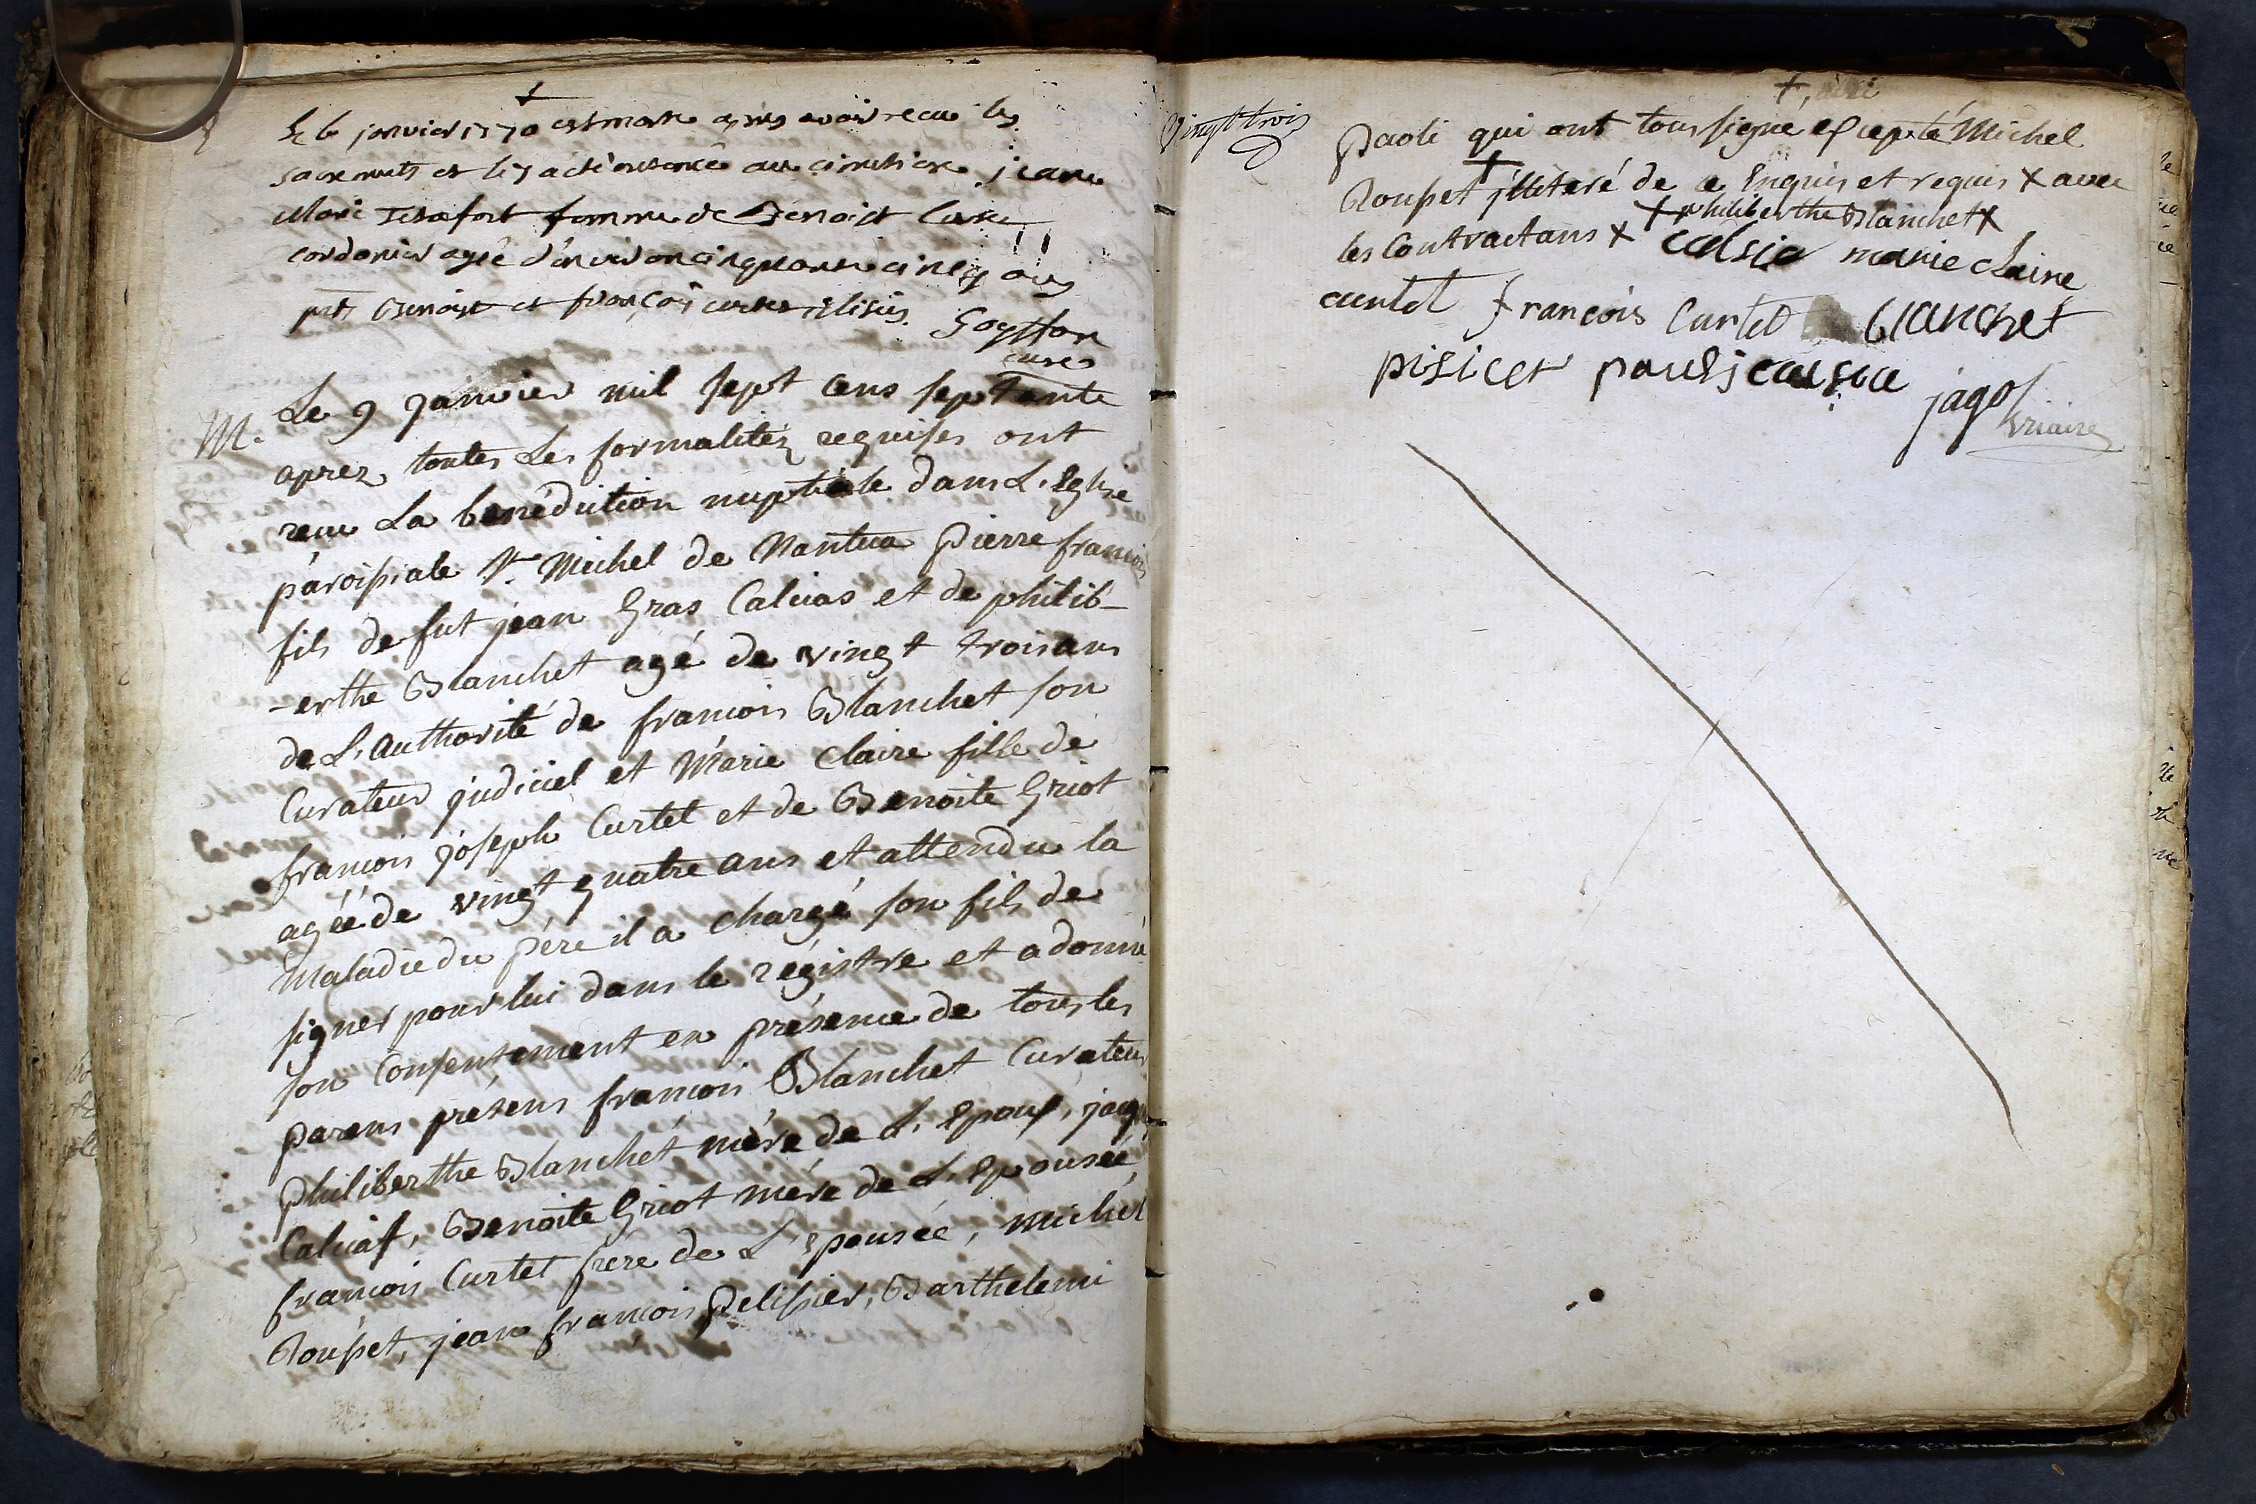 Le 6 janvier 1770 est morte après avoir recu les
sacrements et le 7 a été au cimetiere jeanne
Marie femme de Benoist
cordonier agée d'environ cinquante cinq ans
Benoist et françois Goyffon
curé
M. Le 9 janvier mil sept cens septante
aprez toutes Les formalitéz requises ont
recu La bénédiction nuptiale dans L'Eglise
paroissiale St Michel de Nantua Pierre francois
fils de fut jean Gras Calvas et de philib-
-erthe Blanchet agé de vingt trois ans
de L'authorité de francois Blanchet son
Curateur judiciel et Marie Claire fille de
francois joseph Curtet et de Benoite Griot
agéé de vingt quatre ans et attendu la
maladie du pére il a chargé son fils de
signer pour lui dans le régistre et a donné
son Consentement en présence de tous les
parens présens francois Blanchet Curateur
Philiberthe Blanchet mére de L'Epoux, jaq
Calvas, Benoite Griot mére de L'Epousée,
francois Curtet frere de L'epousée, Michel
Roupet, jean francois Pelissier, Barthelemi
vingt trois
Paoli qui ont tous signe excepté Michel
Roupet + illiteré de ce Enquis et requis x avec
les Contractans x + philiberthe Blanchet x
calsia marie claire
curtet francois Curtet blanchet
pisicer paouli calsia
jago
vicaire